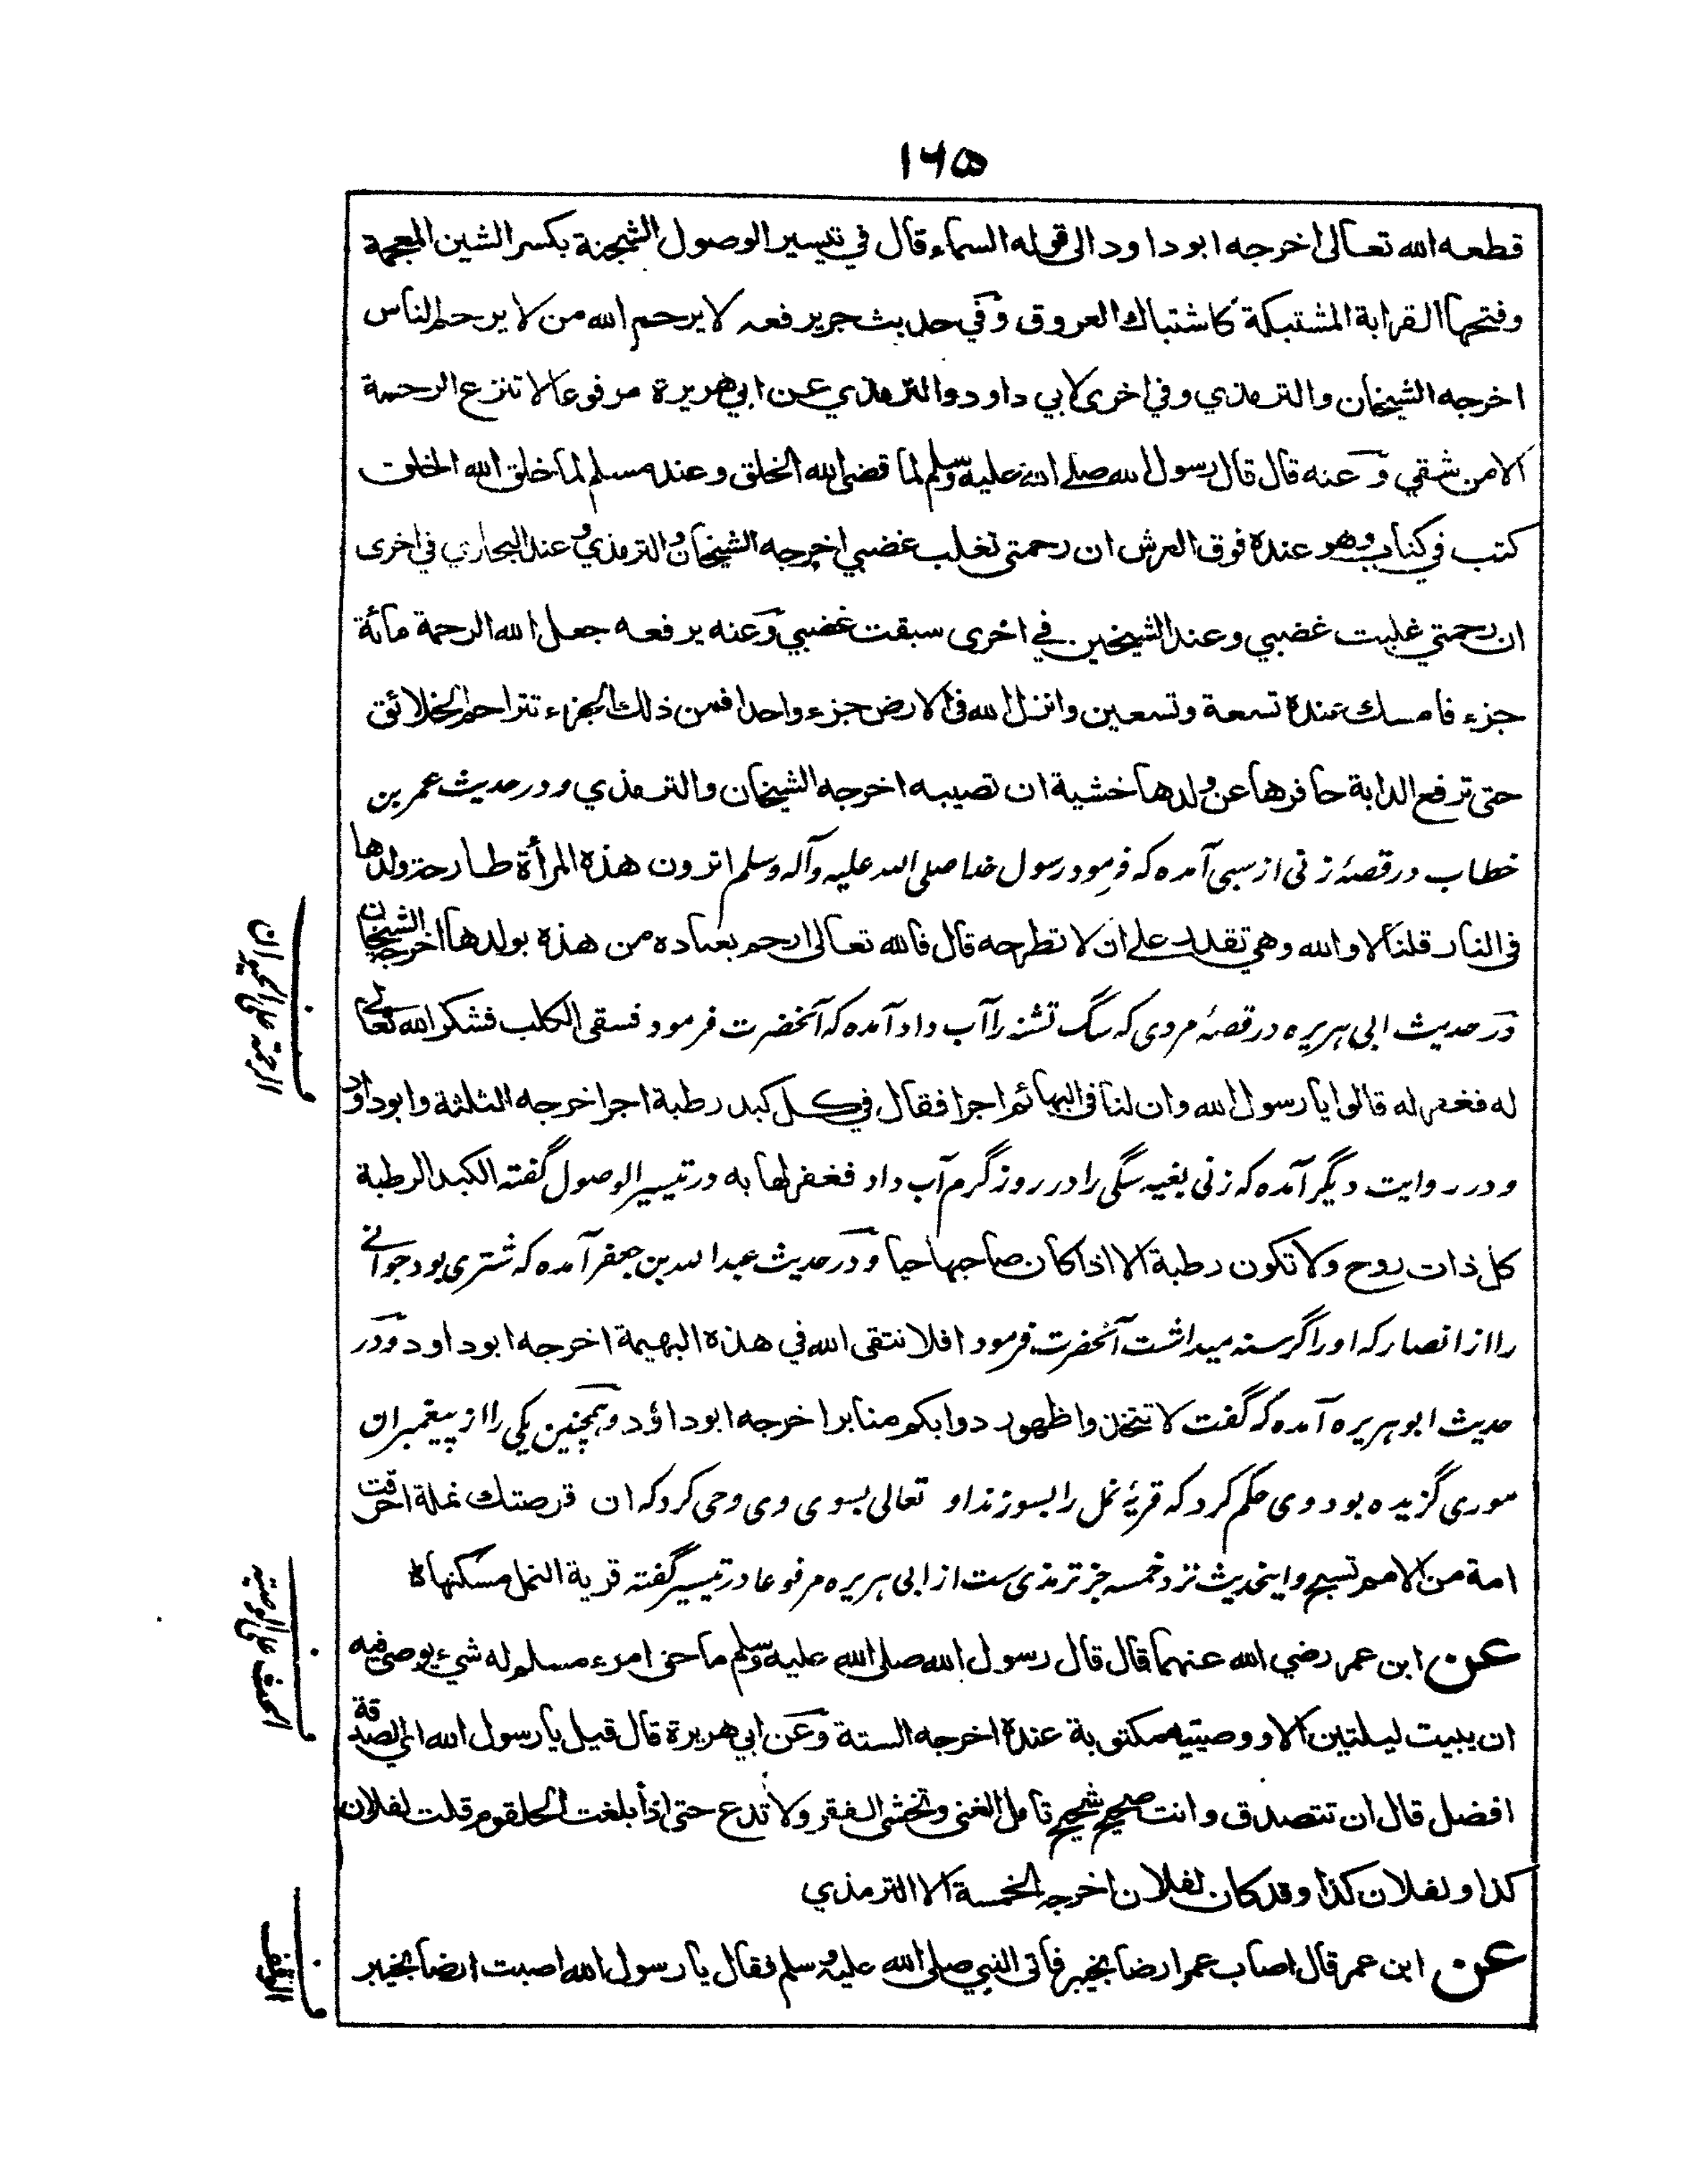 ١٦٥
قطعه الله تعالى اخرجه ابو داود الى قوله السماء قال في تيسير الوصول الشجنة بكسر الشين المعجمة
وفتحها القرابة المشتبكة كاشتباك العروق وفي حديث جرير فعه لا يرحم الله من لا يرحم الناس
اخرجه الشيخان والترمذي وفي اخرى لابي داود والترمذي عن ابي هريرة مرفوعا لا تنزع الرحمة
الا من شقي وعنه قال قال رسول الله صلى الله عليه وسلم لما قضى الله الخلق وعند مسلم لما خلق الله الخلق
كتب في كتاب وهو عنده فوق العرش ان رحمتي تغلب غضبي اخرجه الشيخان والترمذي وعند البخاري في اخرى
ان رحمتي غلبت غضبي وعند الشيخين في اخرى سبقت غضبي وعنه يرفعه جعل الله الرحمة مائة
جزء فامسك عنده تسعة وتسعين وانزل الله في الارض جزء واحدا فمن ذلك الجزء تتراحم الخلائق
حتى ترفع الدابة حافرها عن ولدها خشية ان تصيبه اخرجه الشيخان والترمذي ودر حدیث عمر بن
خطاب در قصۂ زنی از سبی آمده که فرمود رسول خدا صلی الله علیه وآله وسلم اترون هذه المرأة طارحة ولدها
في النار قلنا لا والله وهي تقدر على ان لا تطرحه قال فالله تعالى ارحم بعباده من هذه بولدها اخرجه الشيخان
ودر حدیث ابی هریره در قصۂ مردی که سگ تشنه را آب داد آمده که آنحضرت فرمود فسقى الكلب فشكر الله تعالى
له فغفر له قالوا يا رسول الله وان لنا في البهائم اجرا فقال في كل كبد رطبة اجرا خرجه الثلثة وابو داود
ودر روایت دیگر آمده که زنی بغیه سگی را در روز گرم آب داد فغفر لها به در تیسیر الوصول گفته الكبد الرطبة
كل ذات روح ولا تكون رطبة الا اذا كان صاحبها حيا ودر حدیث عبد الله بن جعفر آمده که شتری بود جوانے
را از انصار که او را گرسنه میداشت آنحضرت فرمود افلا تتقى الله في هذه البهيمة اخرجه ابو داود ودر
حدیث ابو هریره آمده که گفت لا تتخذوا ظهور دوابكم منابر اخرجه ابو داؤد وهمچنین یکی را از پیغمبران
موری گزیده بود وی حکم کرد که قریۂ نمل را بسوزند او تعالی بسوی وی وحی کرد که ان قرصتك نملة احرقت
امة من الامم تسبح واینحدیث نزد خمسه جز ترمذی ست از ابی هریره مرفوعا در تیسیر گفته قرية النمل مسكنها ه
عن ابن عمر رضي الله عنهما قال قال رسول الله صلى الله عليه وسلم ما حق امرء مسلم له شيء يوصي فيه
ان يبيت ليلتين الا ووصيته مكتوبة عنده اخرجه الستة وعن ابي هريرة قال قيل يا رسول الله اي الصدقة
افضل قال ان تتصدق وانت صحيح شحيح تامل الغنى وتخشى الفقر ولا تدع حتى اذا بلغت الحلقوم قلت لفلان
كذا ولفلان كذا وقد كان لفلان اخرجه الخمسة الا الترمذي
عن ابن عمر قال اصاب عمر ارضا بخيبر فاتى النبي صلى الله عليه وسلم فقال يا رسول الله اصبت ارضا بخيبر
ف
الرحمة على الحيوان
ف
الحث على الوصية
ف
الوقف